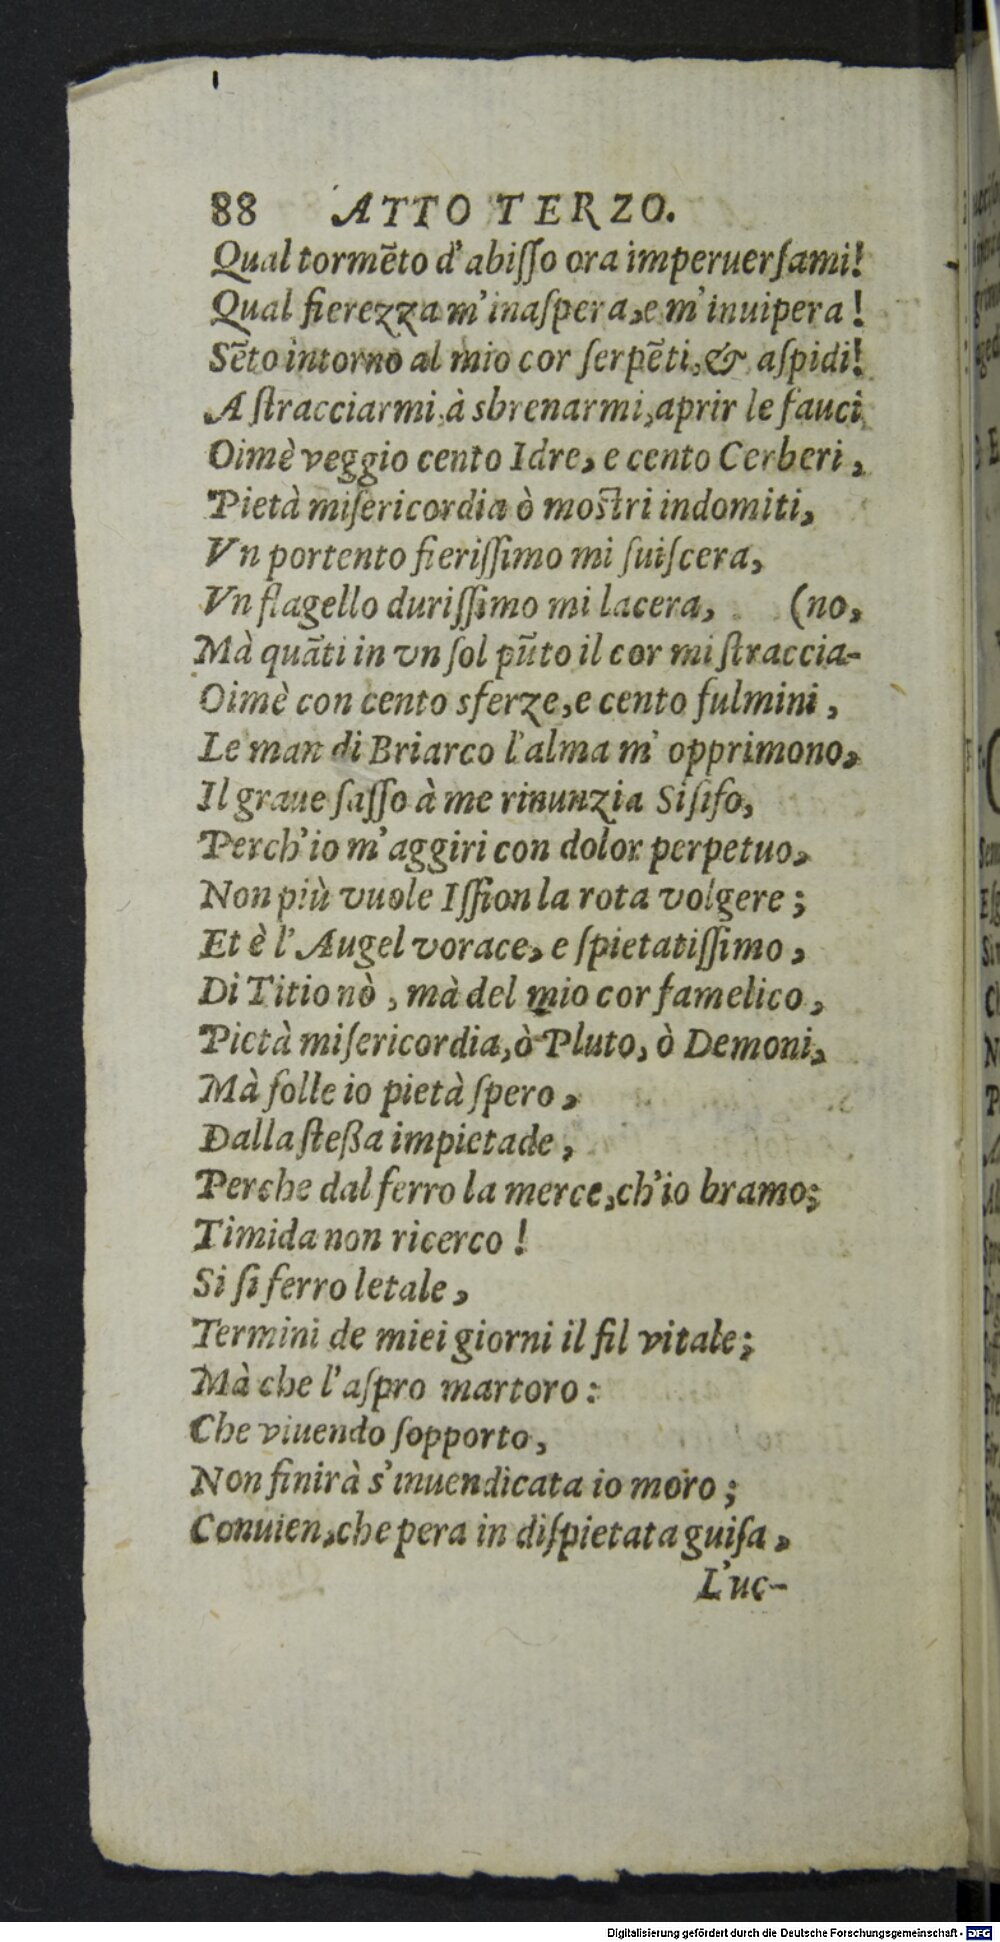 88 ATTO TERZO.
Qual tormẽto d'abiſſo ora imperuerſami!
Qual fierezza m'inaſpera, e m'inuipera!
Sẽto intorno al mio cor ſerpẽti, & aſpidi!
A ſtracciarmi, à sbrenarmi, aprir le fauci
Oimè veggio cento Idre, e cento Cerberi,
Pietà miſericordia ò moſtri indomiti,
Vn portento fieriſſimo mi ſuiſcera,
Vn flagello duriſſimo mi lacera, (no,
Mà quãti in vn ſol pũto il cor mi ſtraccia-
Oimè con cento sferze, e cento fulmini,
Le man di Briarco l'alma m' opprimono,
Il graue ſaſſo à me rinunzia Siſifo,
Perch'io m'aggiri con dolor perpetuo,
Non più vuole Iſſion la rota volgere;
Et è l'Augel vorace, e ſpietatiſſimo,
Di Titio nò, mà del mio cor famelico,
Pietà miſericordia, ò Pluto, ò Demoni,
Mà folle io pietà ſpero,
Dalla ſteßa impietade,
Perche dal ferro la merce, ch'io bramo;
Timida non ricerco!
Si ſi ferro letale,
Termini de miei giorni il fil vitale;
Mà che l'aſpro martoro:
Che viuendo ſopporto,
Non finirà s'inuendicata io moro;
Conuien, che pera in diſpietata guiſa,
L'uc-
Digitalisierung gefördert durch die Deutsche Forschungsgemeinschaft - DFG